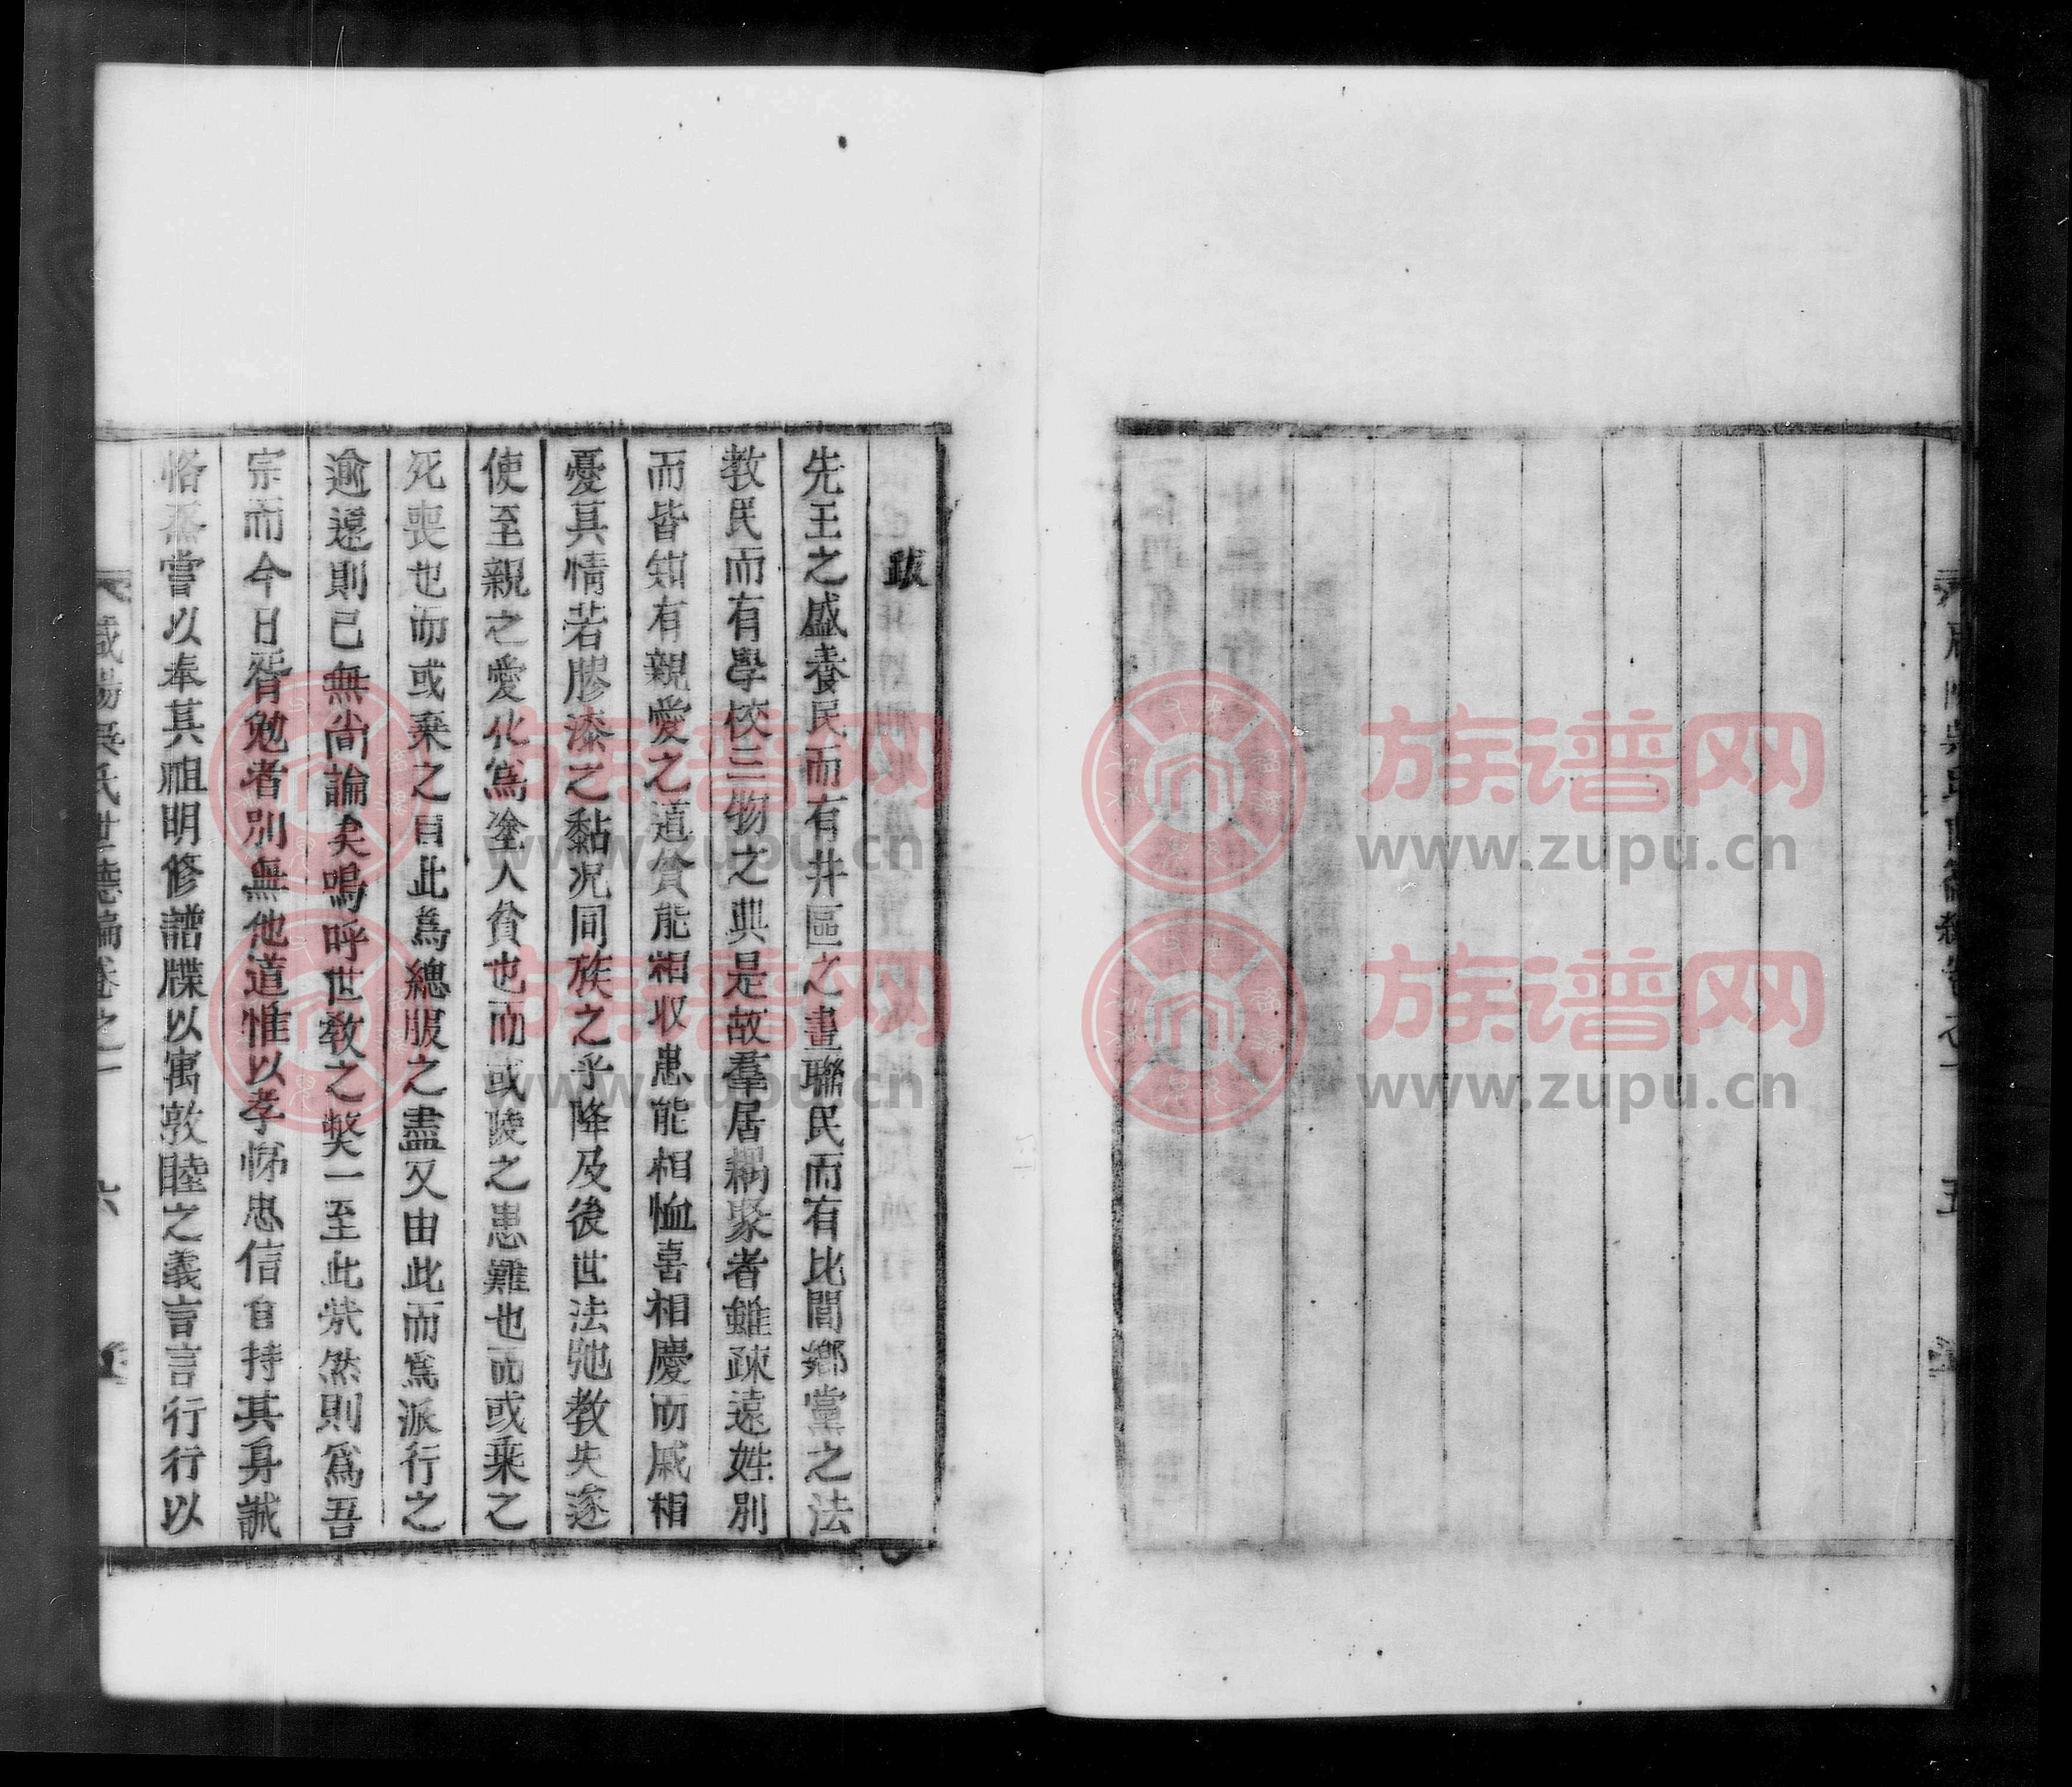 五
跋
先王之盛養民而有井區之畫聯民而有比閭鄉黨之法
教民而有學校三物之典是故羣居耦聚者雖疎遠姓別
而皆知有親愛之道貧能相收患能相恤喜相慶而戚相
憂其情若膠漆之黏况同族之乎降及後世法弛教失遂
使至親之愛化爲塗人貧也而或陵之患難也而或乘之
死喪也而或乘之目此爲緦服之盡又由此而爲派行之
逾遠則已無尙論矣嗚呼世敎之獘一至此
然則爲吾
宗而今日胥勉者別無他道惟以孝悌忠信自持其身誠
恪烝嘗以奉其祖明修譜牒以寓敦睦之義言言行行以
咸陽吳氏世德編卷之一 六
族谱网
www.zupu.cn
族谱网
www.zupu.cn
族谱网
www.zupu.cn
族谱网
www.zupu.cn